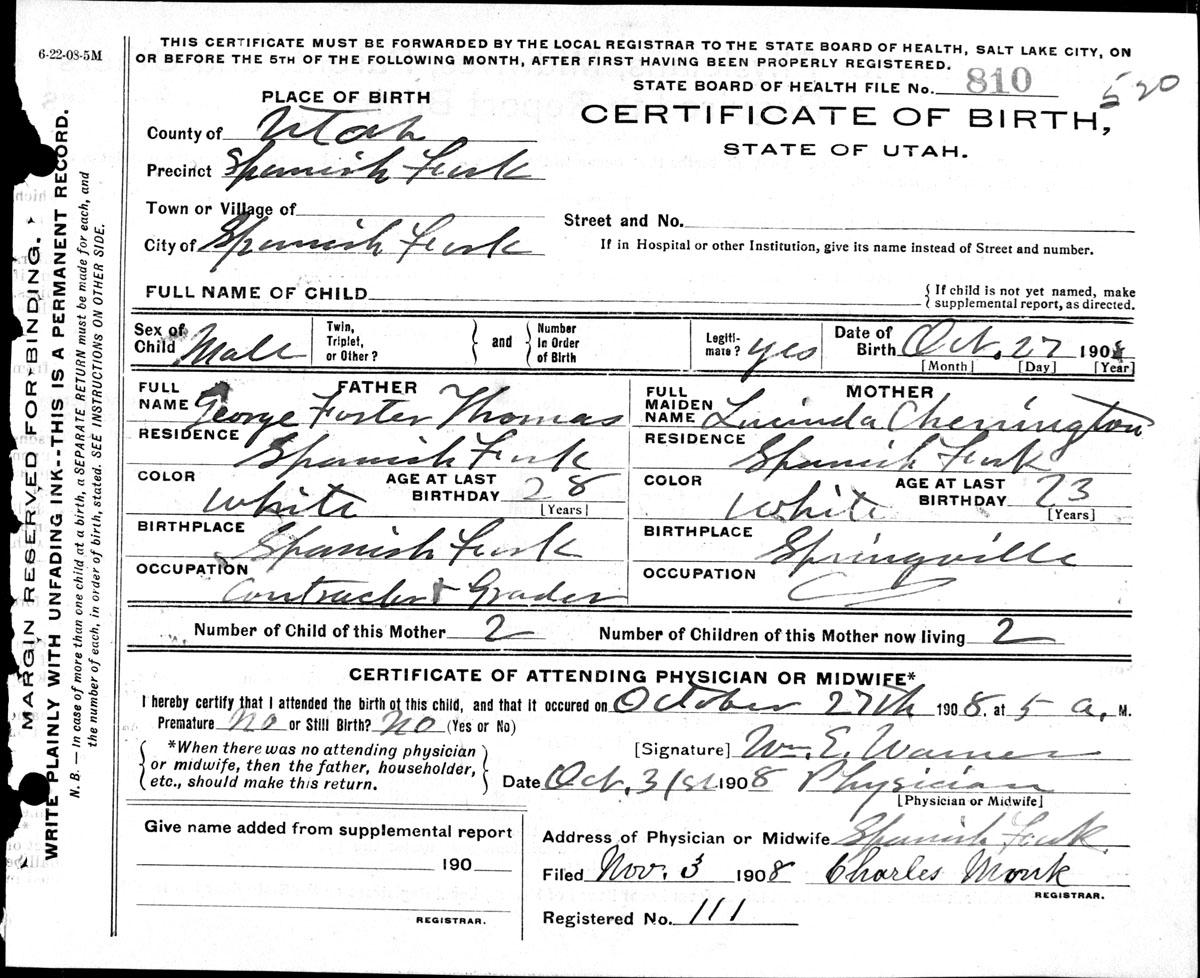 6-22-08-5M
THIS CERTIFICATE MUST BE FORWARDED BY THE LOCAL REGISTRAR TO THE STATE BOARD OF HEALTH, SALT LAKE CITY, ON
OR BEFORE THE 5TH OF THE FOLLOWING MONTH, AFTER FIRST HAVING BEEN PROPERLY REGISTERED.
STATE BOARD OF HEALTH FILE No. 810
520
PLACE OF BIRTH
CERTIFICATE OF BIRTH,
STATE OF UTAH.
County of Utah
Precinct Spanish Fork
Town or Village of
Street and No.
City of Spanish Fork
If in Hospital or other Institution, give its name instead of Street and number.
FULL NAME OF CHILD
{ If child is not yet named, make
supplemental report, as directed.
Sex of Child Male
Twin, Triplet, or Other?
and
Number in Order of Birth
Legiti-mate? yes
Date of Birth Oct. 27 1908
[Month] [Day] [Year]
FATHER
FULL NAME George Foster Thomas
RESIDENCE Spanish Fork
COLOR White
AGE AT LAST BIRTHDAY 28
[Years]
BIRTHPLACE Spanish Fork
OCCUPATION Contractor & Grader
MOTHER
FULL MAIDEN NAME Lucinda Cherrington
RESIDENCE Spanish Fork
COLOR White
AGE AT LAST BIRTHDAY 23
[Years]
BIRTHPLACE Springville
OCCUPATION
Number of Child of this Mother 2 Number of Children of this Mother now living 2
CERTIFICATE OF ATTENDING PHYSICIAN OR MIDWIFE*
I hereby certify that I attended the birth of this child, and that it occured on October 27th 1908, at 5 a. M.
Premature No or Still Birth? No (Yes or No)
*When there was no attending physician
or midwife, then the father, householder,
etc., should make this return.
[Signature] Wm. E. Warner
Date Oct. 31st 1908 Physician
[Physician or Midwife]
Give name added from supplemental report
190
REGISTRAR.
Address of Physician or Midwife Spanish Fork.
Filed Nov. 3 1908 Charles Monk
REGISTRAR.
Registered No. 111
MARGIN RESERVED FOR BINDING.
WRITE PLAINLY WITH UNFADING INK--THIS IS A PERMANENT RECORD.
N. B. — In case of more than one child at a birth, a SEPARATE RETURN must be made for each, and
the number of each, in order of birth, stated. SEE INSTRUCTIONS ON OTHER SIDE.